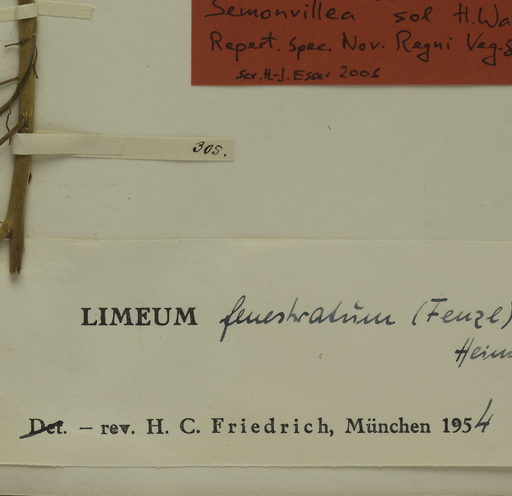 Semonvillea sol H.Wa
Repert. spec. Nov. Regni Veg.
scr. H-J. Esser 2006
305.
LIMEUM fenestratum (Fenzl)
Heim
Det. – rev. H. C. Friedrich, München 1954